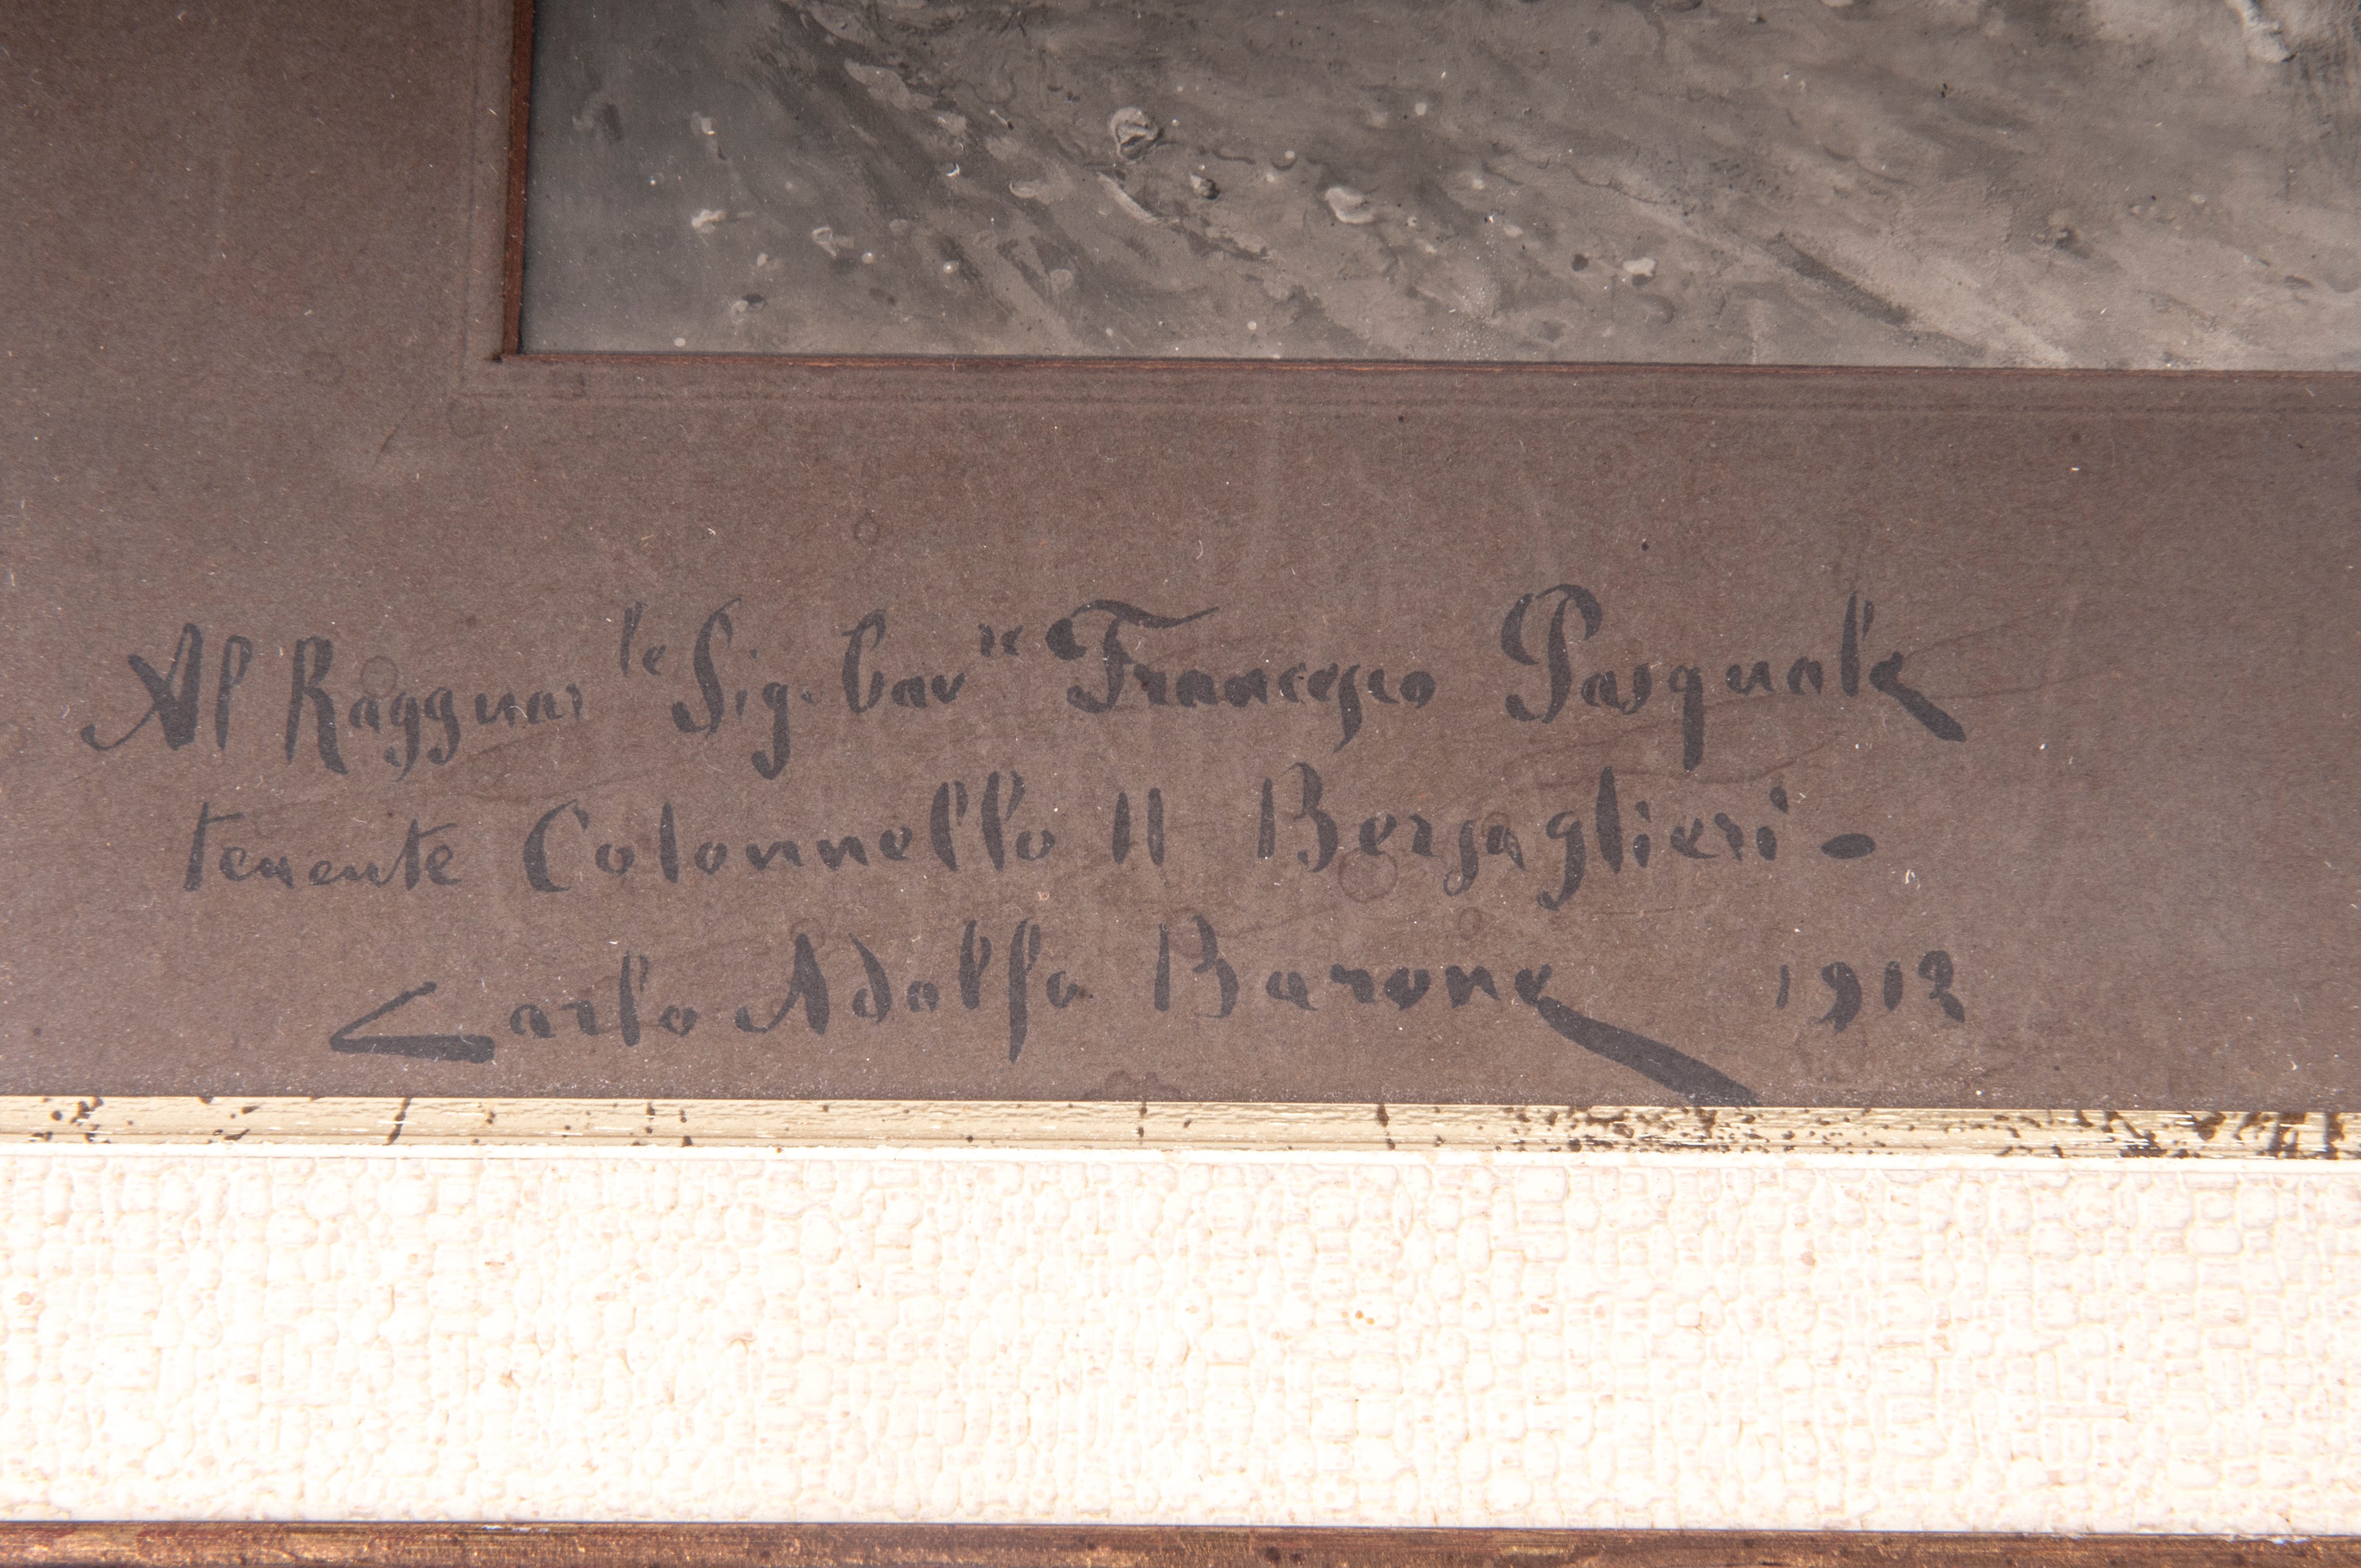 Al Ragguar le Sig. Cav re Francesco Pasquale
tenente Colonnello 11 Bersaglieri -
Carlo Adolfo Barone 1912